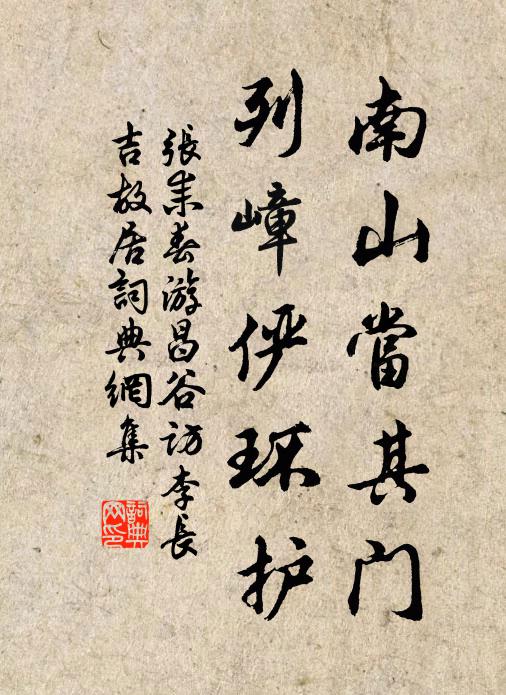 南山當其门
列嶂俨环护
張耒春游昌谷访李長
吉故居詞典網集
詞典網印